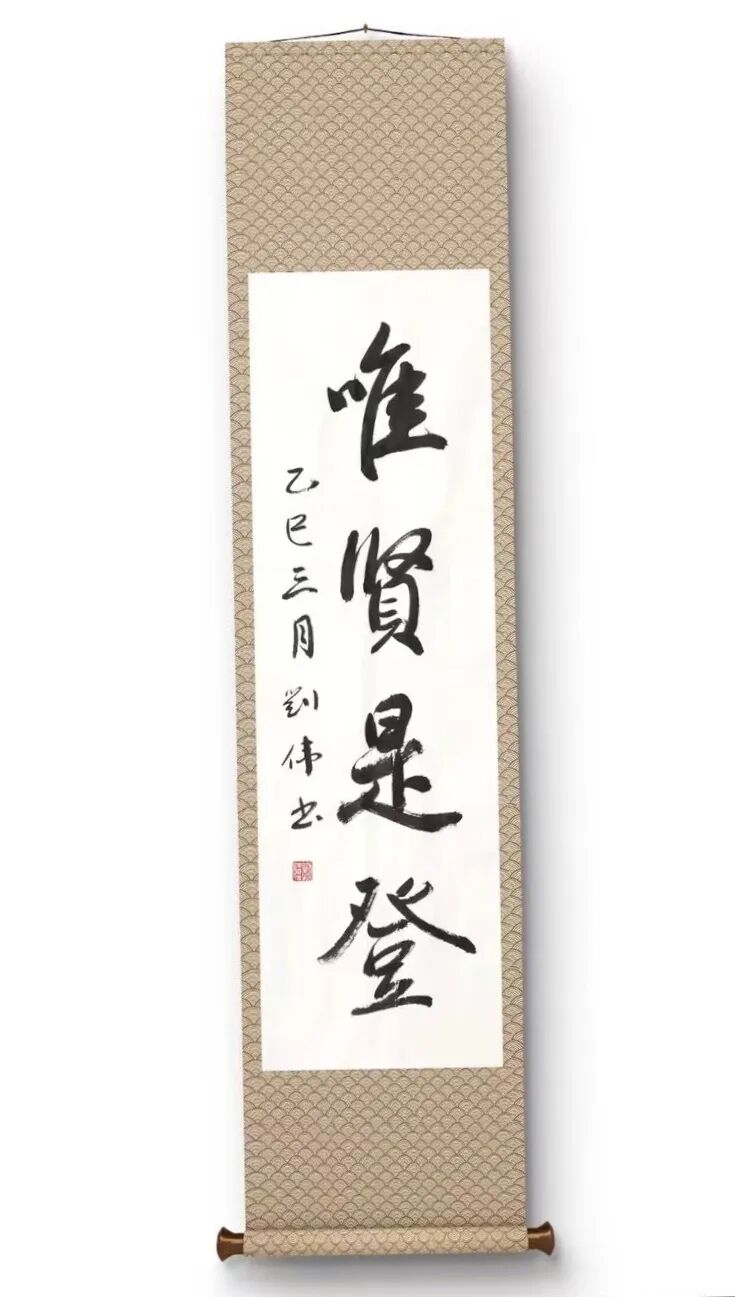 唯賢是登
乙巳三月劉伟书